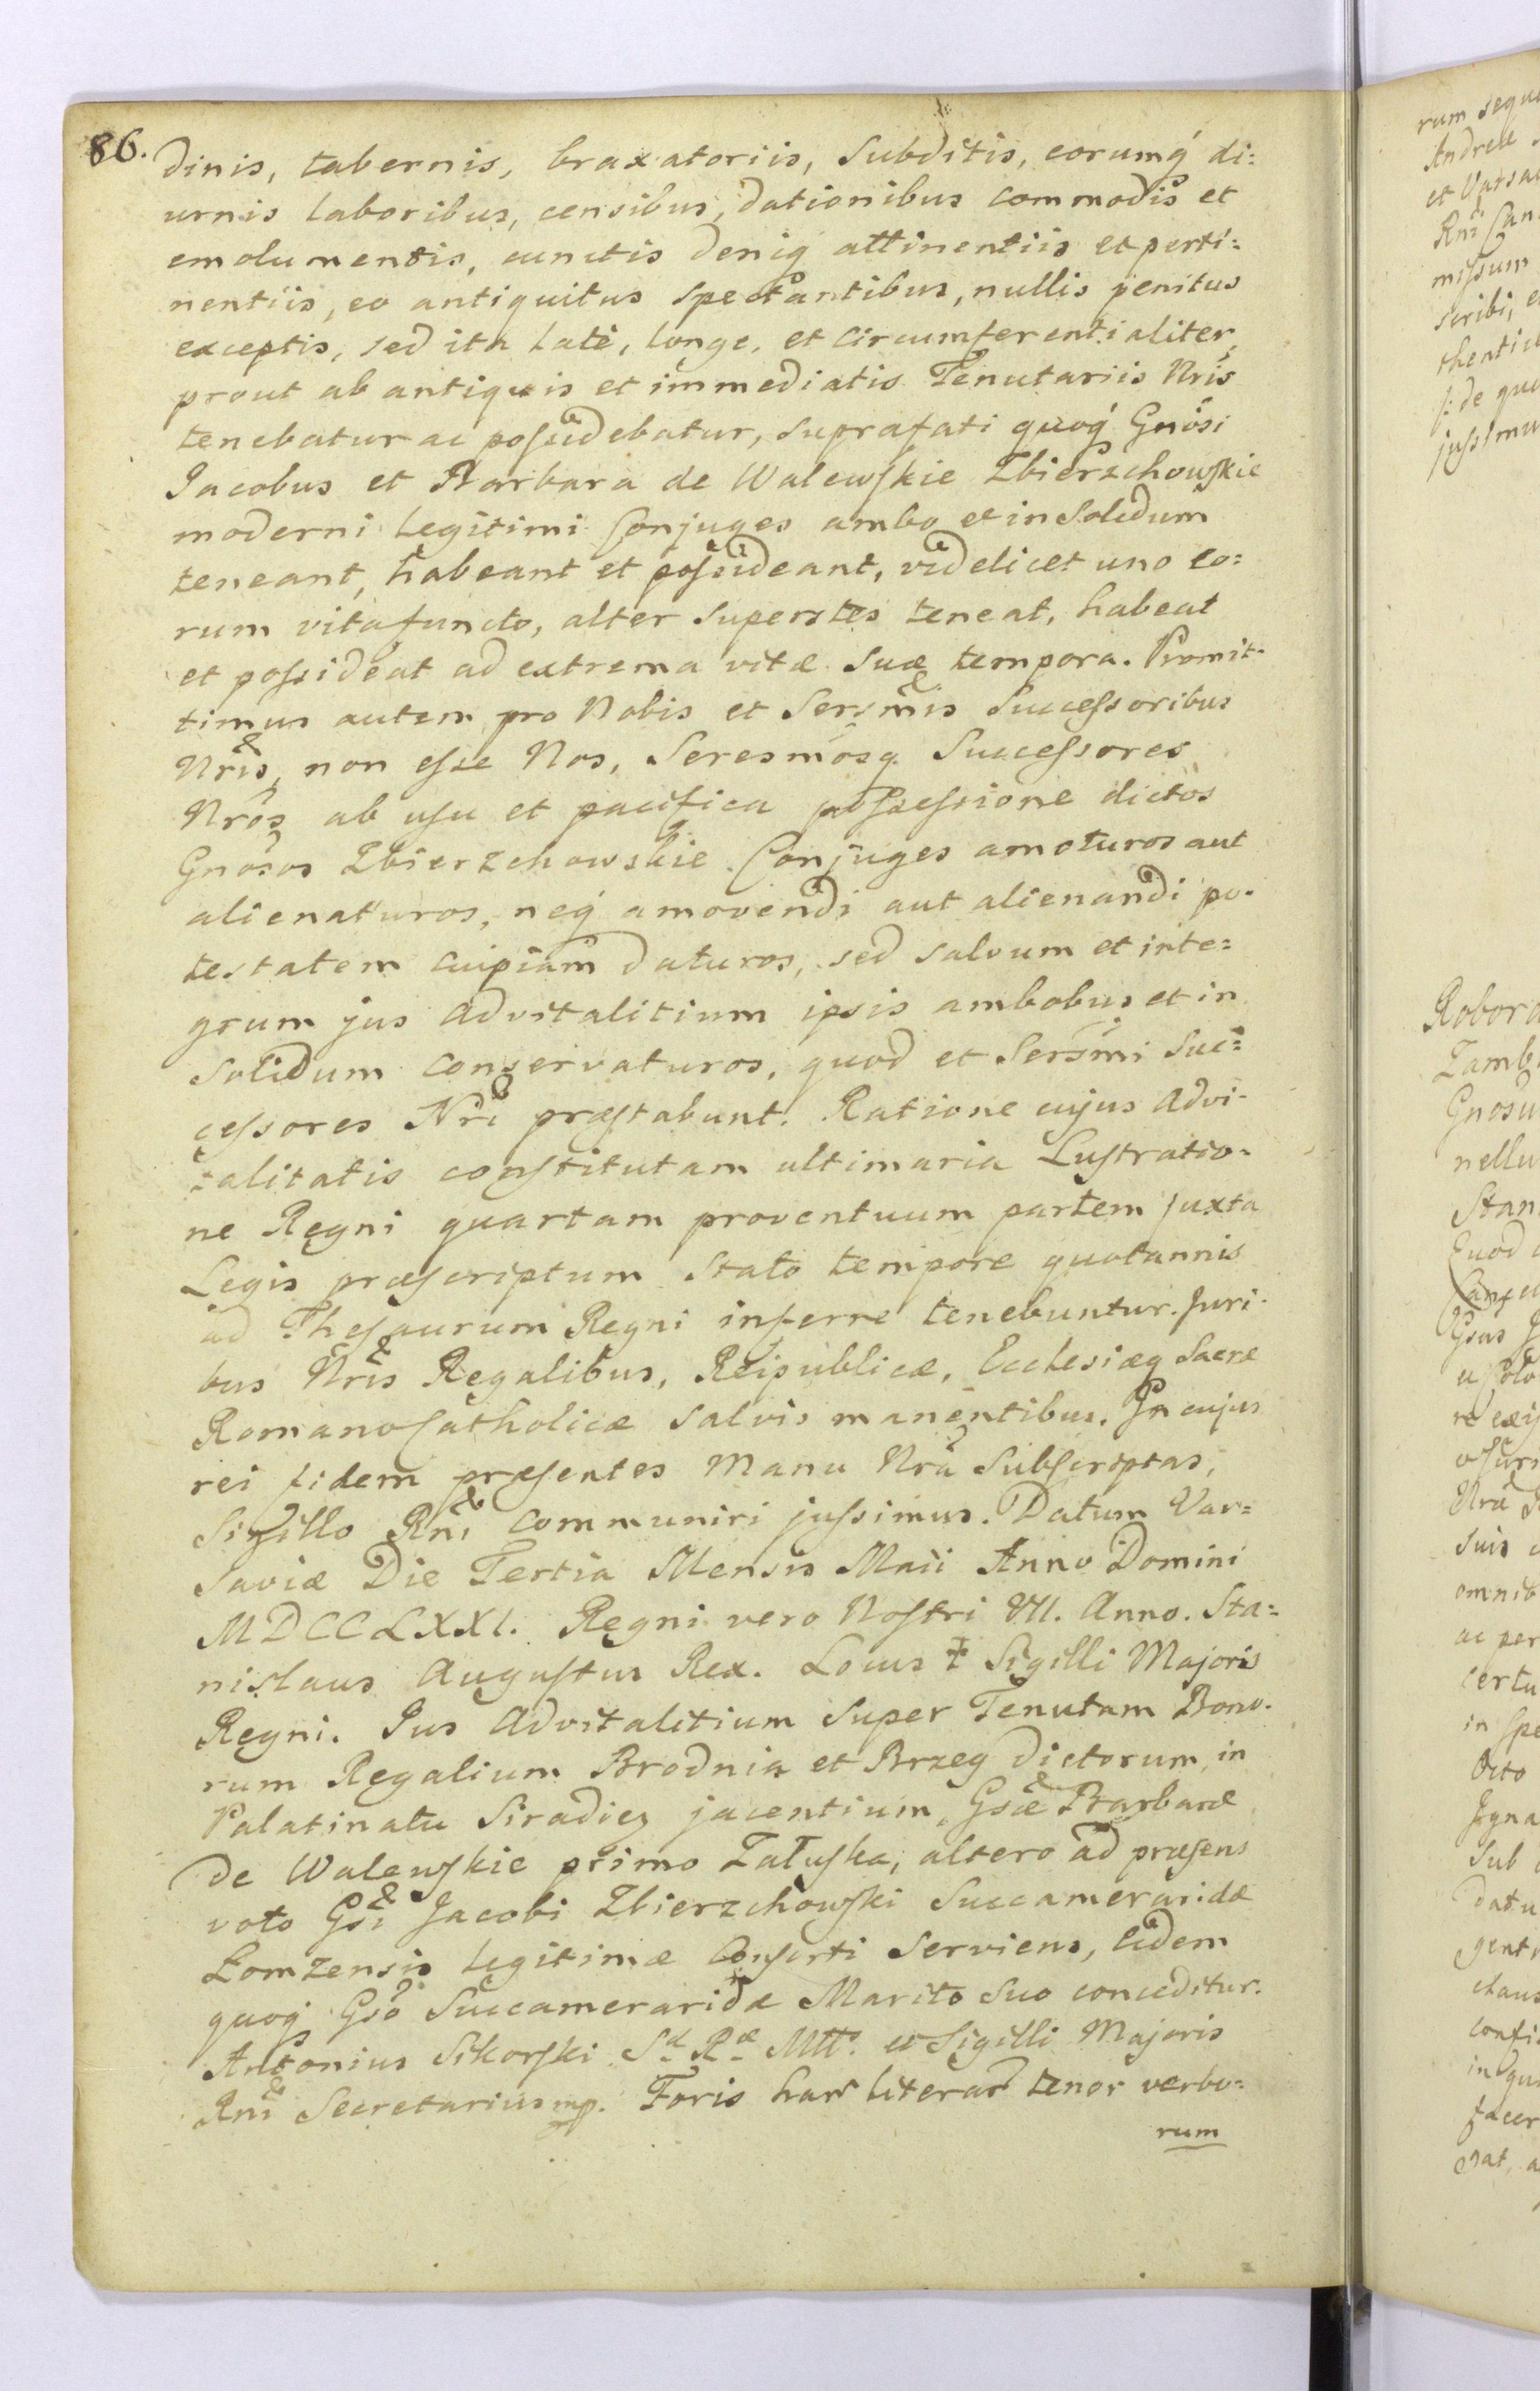 86.
dinis, tabernis, braxatoriis, Subditis, eorumq́ di:
urnis laboribus, censibus, dationibus commodis et
emolumentis, cunctis deniq attinentiis et perti:
nentiis, eo antiquitus spectantibus, nullis penitus
exceptis, sed ita latè, longe, et circumferentialiter,
prout ab antiquis et immediatis Tenutariis Nris
tenebatur ac poſsidebatur, suprafati quoq́ Gnosi
Jacobus et Barbara de Walewſkie Zbierzchowſkie
moderni legitimi Conjuges ambo et in Solidum
teneant, habeant et poſsideant, videlicet uno eo:
rum vitafuncto, alter superstes teneat, habeat
et poſsideat ad extrema vitæ suæ tempora. Promit-
timus autem pro Nobis et Sersmis Succeſsoribus
Nris, non eſse Nos, Seresmosq Succeſsores
Nros ab uſu et pacifica poſseſsione dictos
Gnosos Zbierzchowskie Conjuges amoturos aut
alienaturos, neq́ amovendi aut alienandi po-
testatem cuipiam daturos, sed salvum et inte:
grum jus advitalitium ipsis ambobus et in
Solidum conservaturos, quod et Sersmi Suc:
ceſsores Nri præſtabunt. Ratione cujus advi-
talitatis conſtitutam ultimaria Luſtratio-
ne Regni quartam proventuum partem juxta
Legis præſcriptum stato tempore quotannis
ad Theſaurum Regni inferre tenebuntur. Juri-
bus Nris Regalibus, Reipublicæ, Ecclesiæq Sacræ
Romano Catholicæ salvis manentibus. In cujus
rei fidem præſentes Manu Nra Subſcriptas,
Sigillo Rni communiri juſsimus. Datum Var=
saviæ Die Tertia Mensis Maii Anno Domini
MDCCLXXI. Regni vero Noſtri VII. Anno. Sta:
nislaus Auguſtus Rex. Locus ‡ Sigilli Majoris
Regni. Jus Advitalitium super Tenutam Bono-
rum Regalium Brodnia et Brzeg dictorum, in
Palatinatu Siradien jacentium, Gsæ Barbaræ
de Walewſkie primo Załuſka, altero ad præſens
voto Gsi Jacobi Zbierzchowſki Succameraridæ
Łomzensis legitimæ Conſorti Serviens, eidem
quoq Gso Succameraridæ Marito Suo conceditur.
Antonius Sikorſki S. R. Mtts. et Sigilli Majoris
Rni Secretarius mp. Foris har literar tenor verbo:
rum
rum sequ
Andreæ
et Varsa
Rni Can
miſsum
scribi, e
thentic
/: de quo
juſsimu
Robora
Zamb
Gnosu
nellu
Stan
Quod
Gsus
omnib
ac per
certu
in spe
Octo
Igna
Sub
datu
gent
claus
confi
in qu
facer